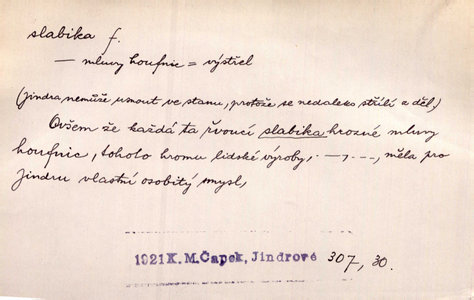 slabika f.
— mluvy houfnic = výstřel
(Jindra nemůže usnout ve stanu, protože se nedaleko střílí z děl)
Ovšem že každá ta řvoucí slabika hrozné mluvy
houfnic, tohoto hromu lidské výroby, - — , - - -, měla pro
Jindru vlastní osobitý smysl,
1921 K. M. Čapek, Jindrové 307, 30.